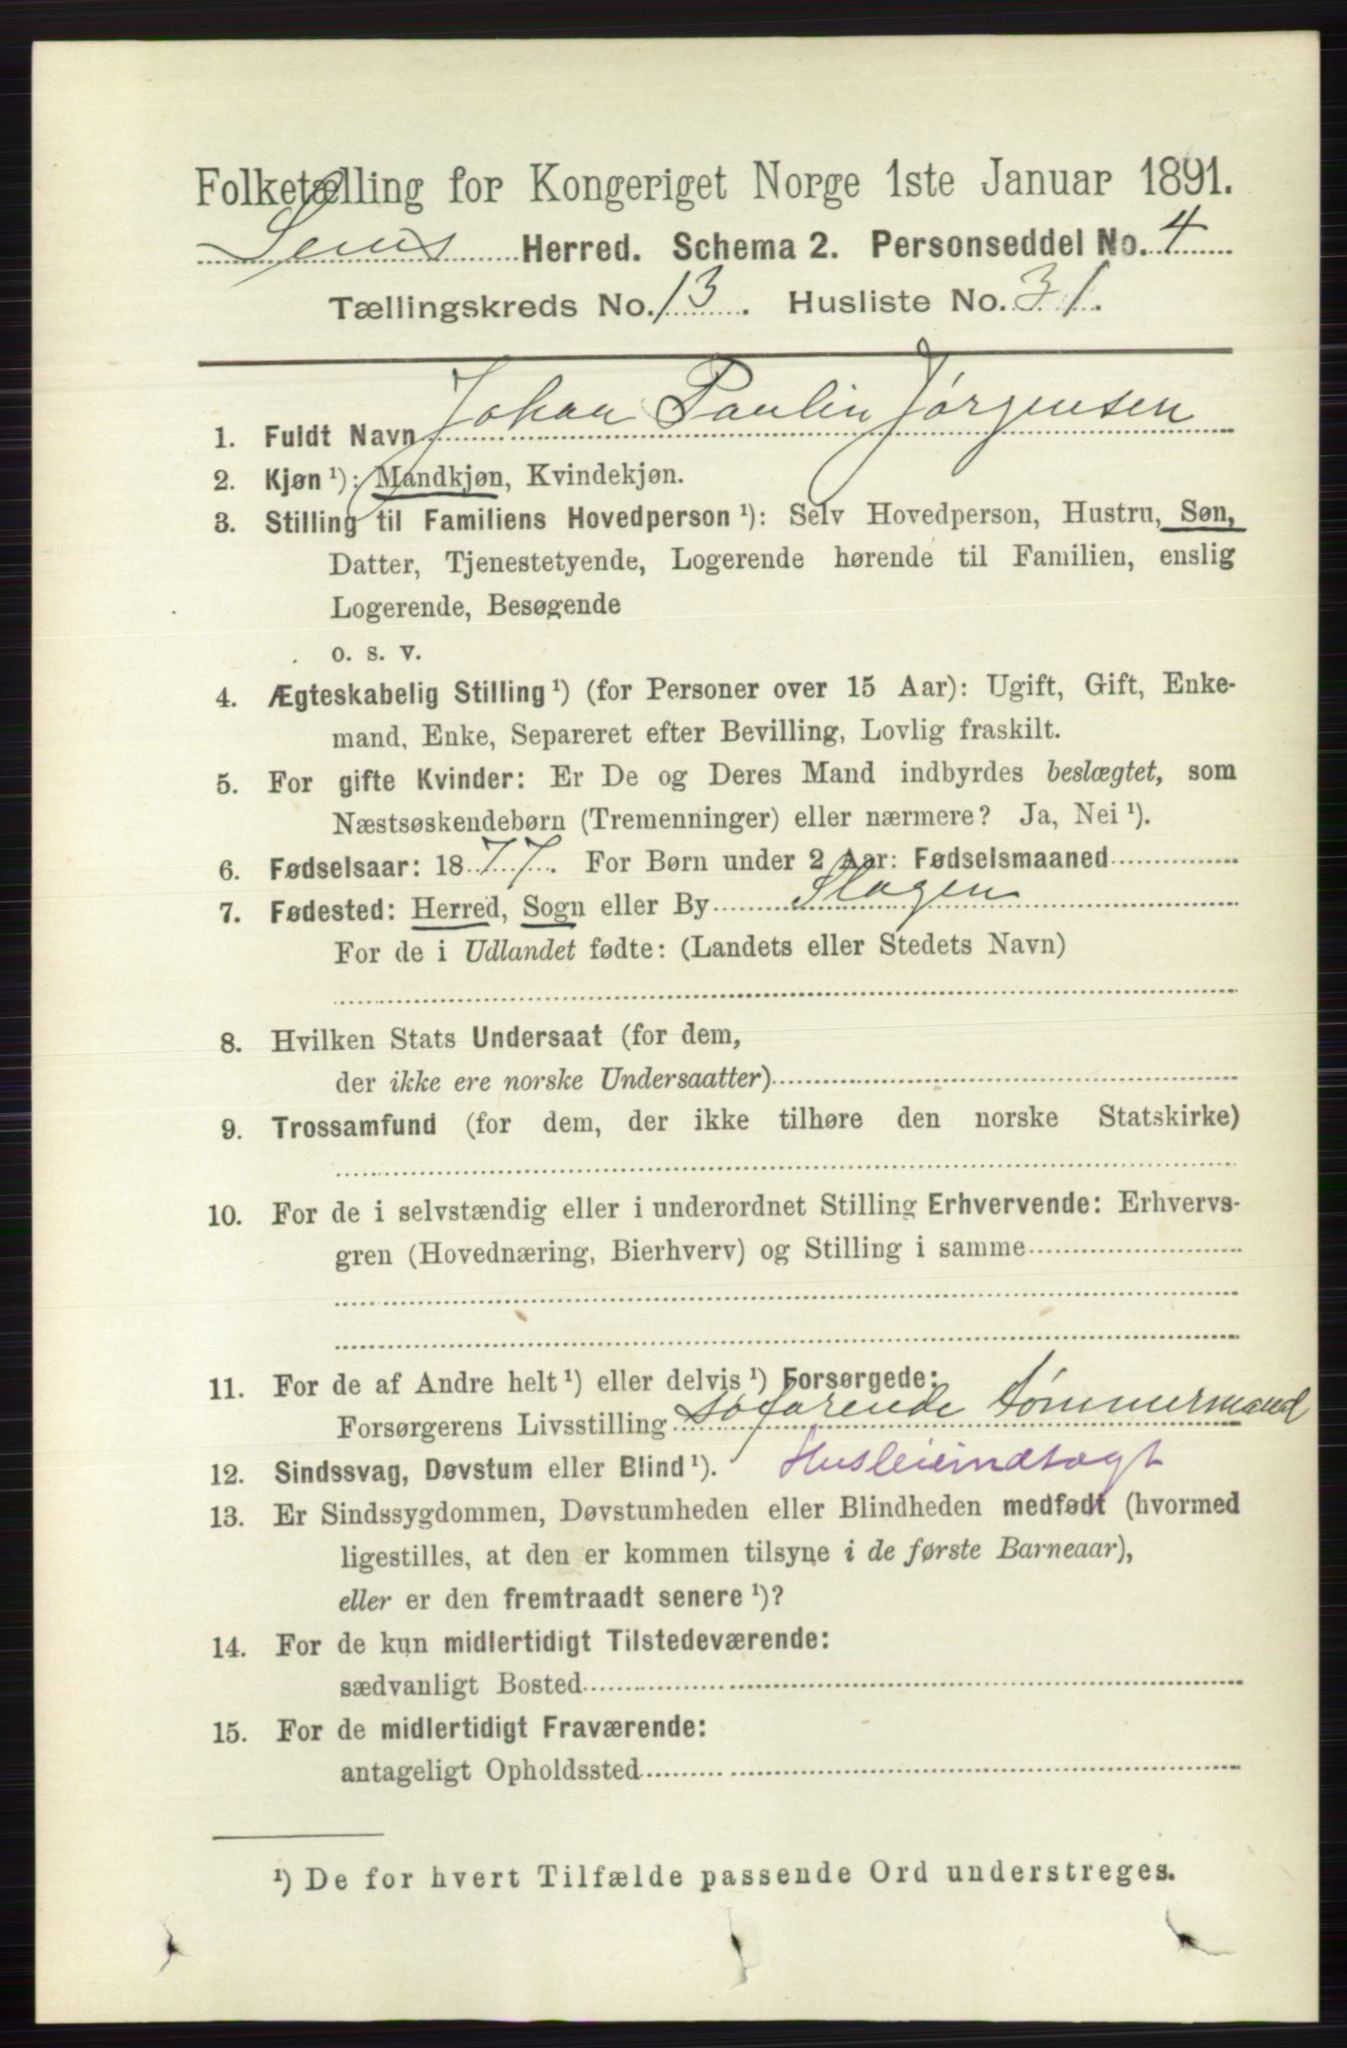 Folketælling for Kongeriget Norge 1ste Januar 1891.
Sems Herred. Schema 2. Personseddel No. 4
Tællingskreds No. 13. Husliste No. 31.
1. Fuldt Navn Johan Paulin Jørgensen
2. Kjøn ¹): Mandkjøn, Kvindekjøn.
3. Stilling til Familiens Hovedperson ¹): Selv Hovedperson, Hustru, Søn,
Datter, Tjenestetyende, Logerende hørende til Familien, enslig
Logerende, Besøgende
o. s. v.
4. Ægteskabelig Stilling ¹) (for Personer over 15 Aar): Ugift, Gift, Enke-
mand, Enke, Separeret efter Bevilling, Lovlig fraskilt.
5. For gifte Kvinder: Er De og Deres Mand indbyrdes beslægtet, som
Næstsøskendebørn (Tremenninger) eller nærmere? Ja, Nei ¹).
6. Fødselsaar: 1877. For Børn under 2 Aar: Fødselsmaaned
7. Fødested: Herred, Sogn eller By Slagen
For de i Udlandet fødte: (Landets eller Stedets Navn)
8. Hvilken Stats Undersaat (for dem,
der ikke ere norske Undersaatter)
9. Trossamfund (for dem, der ikke tilhøre den norske Statskirke)
10. For de i selvstændig eller i underordnet Stilling Erhvervende: Erhvervs-
gren (Hovednæring, Bierhverv) og Stilling i samme
11. For de af Andre helt ¹) eller delvis ¹) Forsørgede:
Forsørgerens Livsstilling søfarende tømmermand
12. Sindssvag, Døvstum eller Blind ¹). Husleieindtægt
13. Er Sindssygdommen, Døvstumheden eller Blindheden medfødt (hvormed
ligestilles, at den er kommen tilsyne i de første Barneaar),
eller er den fremtraadt senere ¹)?
14. For de kun midlertidigt Tilstedeværende:
sædvanligt Bosted
15. For de midlertidigt Fraværende:
antageligt Opholdssted
¹) De for hvert Tilfælde passende Ord understreges.